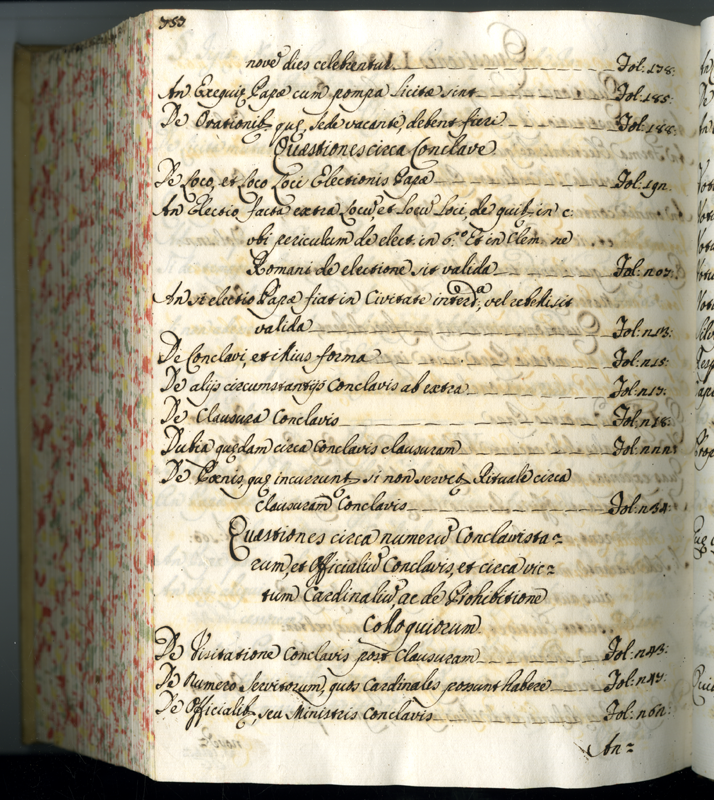 383
novē dies celebrentur. Fol: 178:
An Exequię Papæ cum pompa licitæ sint Fol: 185:
De Orationib, quę, sede vacante, debent fieri Fol: 188:
Quæstiones circa Conclave
De Loco, et Loco Loci Electionis Papæ Fol: 19n.
An Electio facta extra Locū, et Locū Loci, de quib, in c:
ubi periculum de elect. in 6.º Et in Clem: ne
Romani de electione sit valida Fol: n07:
An si electio Papæ fiat in Civitate interd.ª, vel rebelli sit
valida Fol: n13:
De Conclavi, et illius forma Fol: n15:
De alijs circumstantijs Conclavis ab extra Fol: n17.
De Clausura Conclavis Fol: n18:
Dubia quędam circa Conclavis clausuram Fol: nnn:
De Pœnis, quę incurrunt, si non servet, Rituale circa
clausuram Conclavis Fol: n34:
Quæstiones circa numerū Conclavista=
rum, et Officialiū Conclavis, et circa vic=
tum Cardinaliū, ac de Prohibitione
Colloquiorum
De Visitatione Conclavis post Clausuram Fol: n43:
De Numero Servitorum, quos Cardinales possunt habere Fol: n47:
De Officialib, seu Ministris Conclavis Fol: n6n:
An=